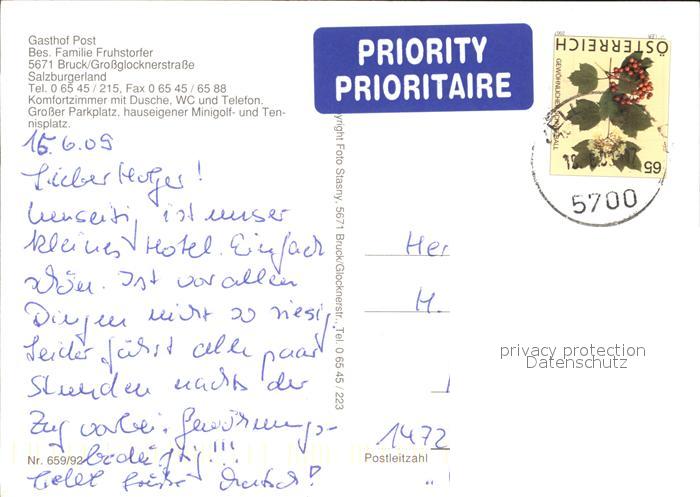 Gasthof Post
Bes. Familie Fruhstorfer
5671 Bruck/Großglocknerstraße
Salzburgerland
Tel. 0 65 45 / 215, Fax 0 65 45 / 65 88
Komfortzimmer mit Dusche, WC und Telefon.
Großer Parkplatz. hauseigener Minigolf- und Ten-
nisplatz.
PRIORITY
PRIORITAIRE
ÖSTERREICH
65
5700
15.6.09
Lieber Holger!
Umseitig ist unser
kleines Hotel. Einfach
schön. Ist vor allen
Dingen nicht so riesig.
Leider fährt alle paar
Stunden nachts der
Zug vorbei. Gewöhnungs-
bedürftig!!!
yright Foto Stasny, 5671 Bruck/Glocknerstr., Tel. 0 65 45 / 223
Her
H.
1472
Nr. 659/92
Postleitzahl
privacy protection
Datenschutz